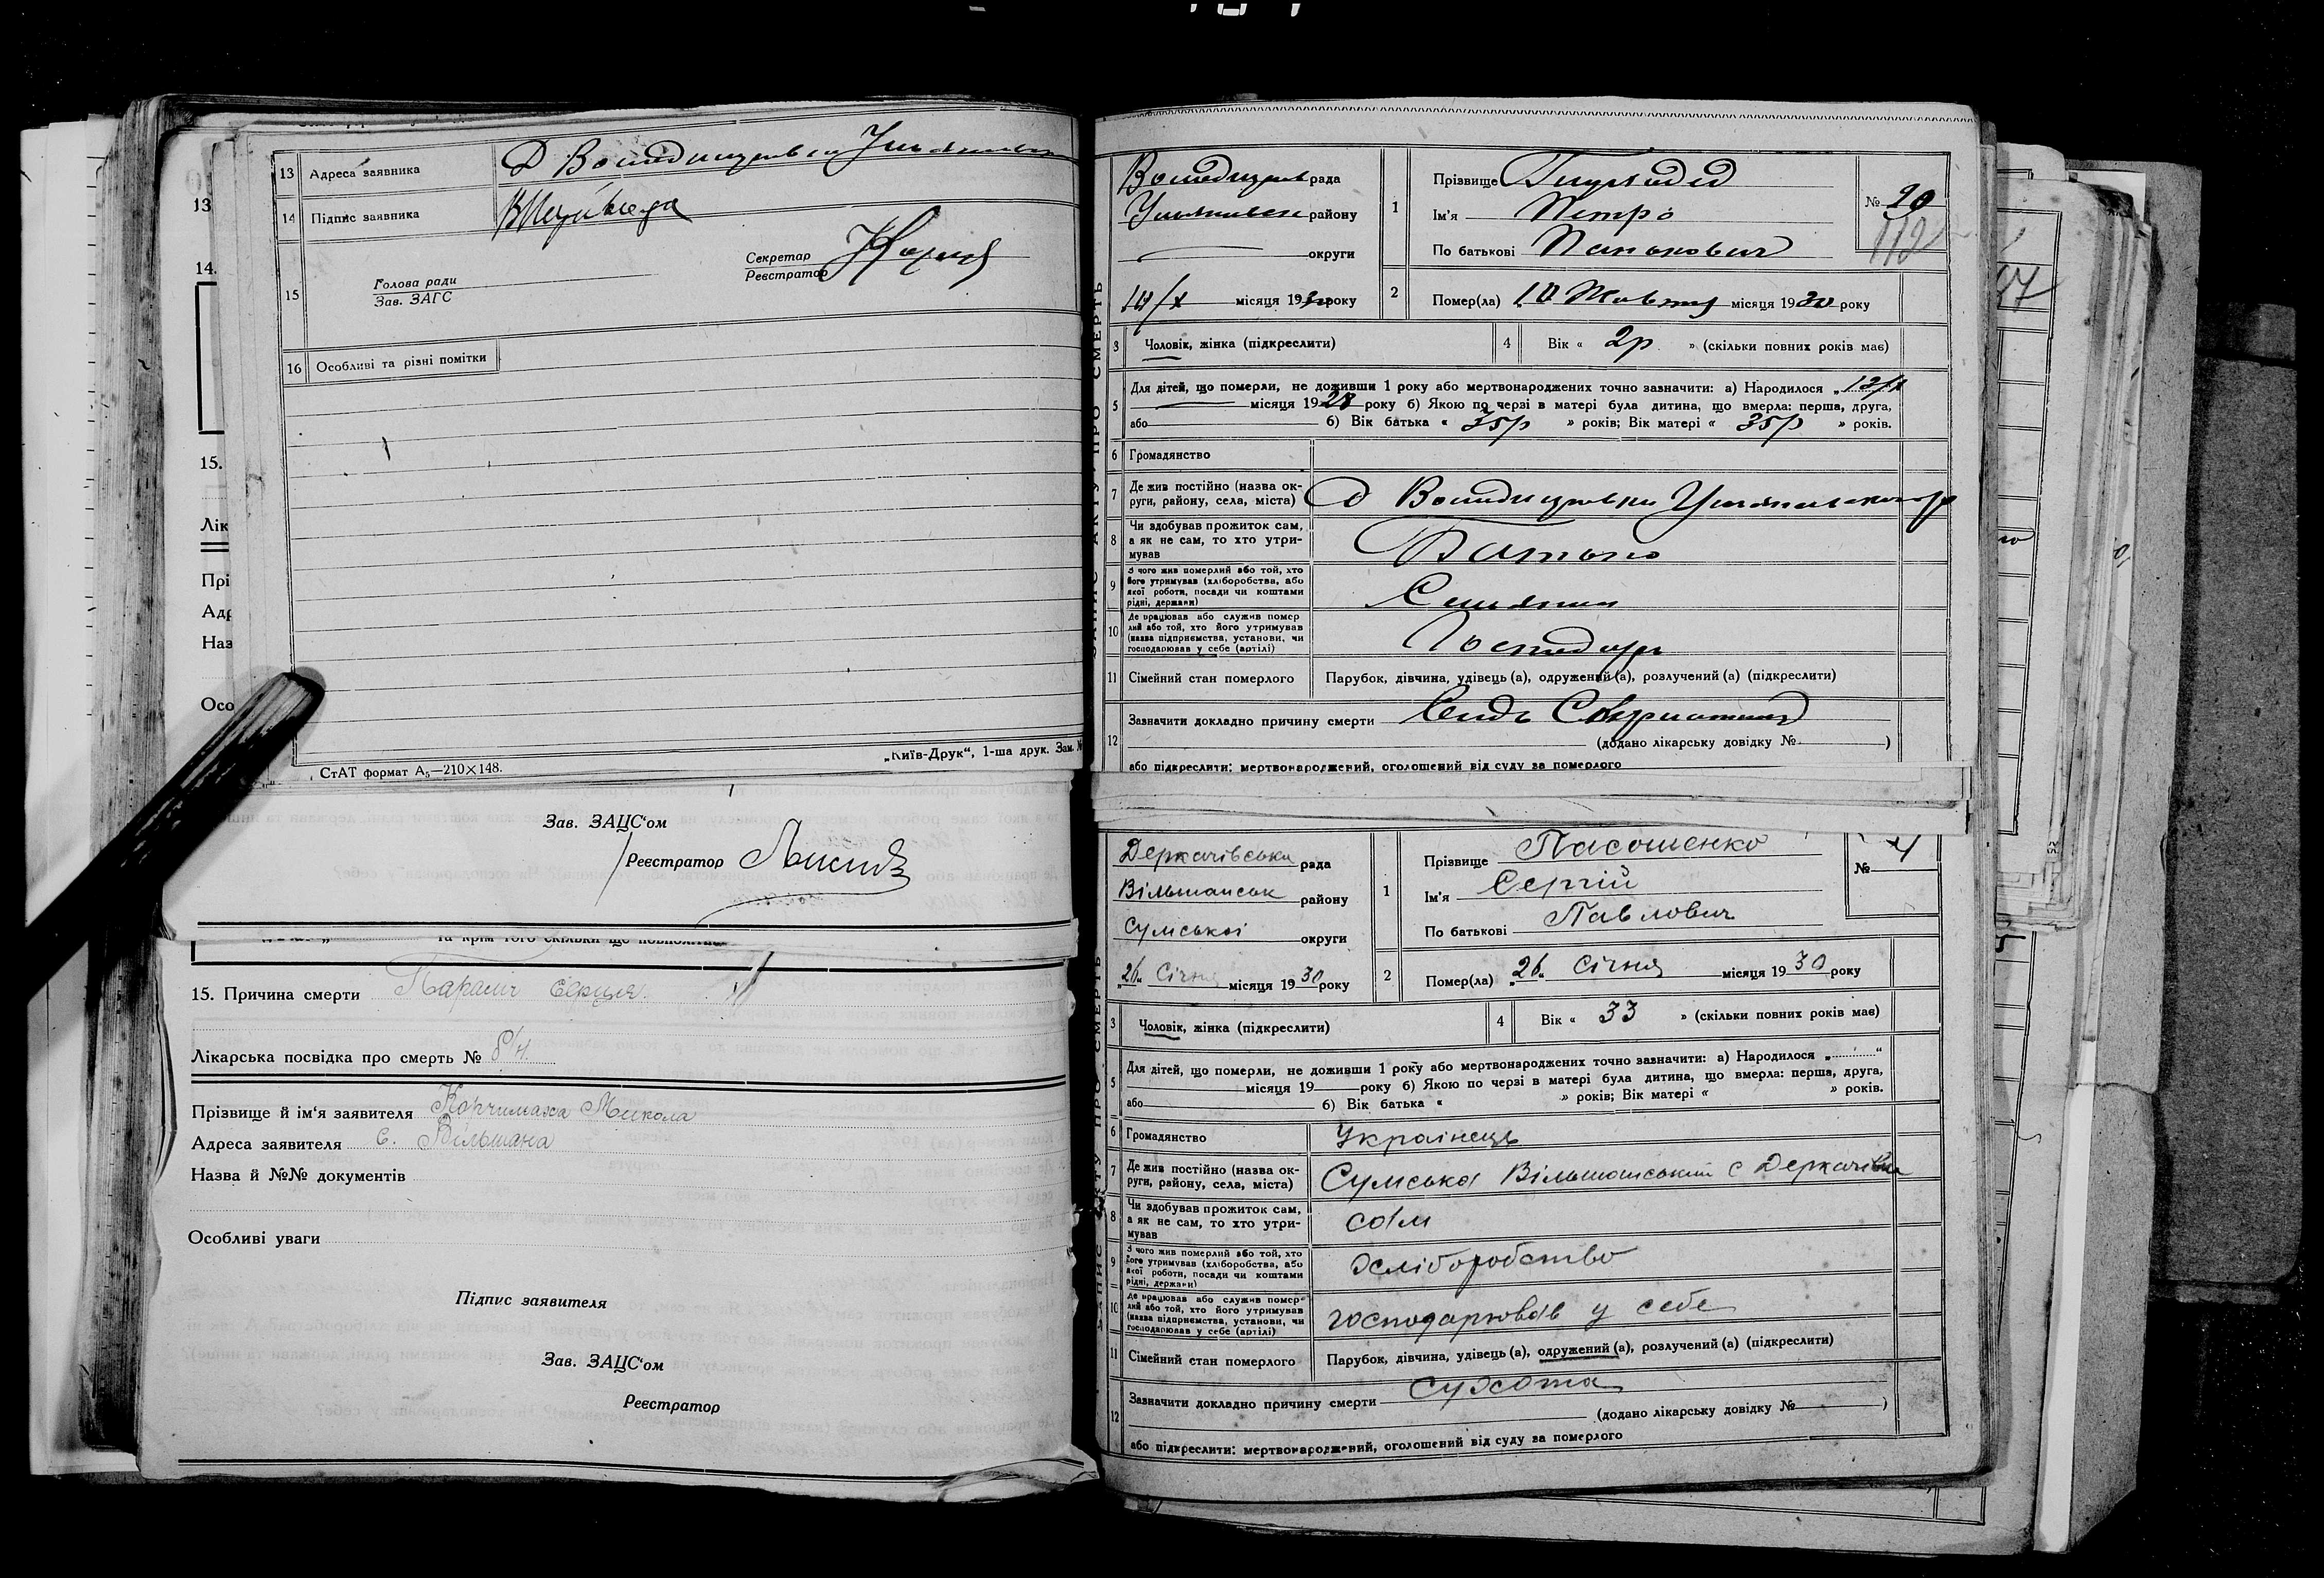 13 Адреса заявника
14 Підпис заявника
15 Голова ради
Зав. ЗАГС
Секретар
Реєстратор
16 Особливі та різні помітки
СтАТ формат А₅—210×148.
„Київ-Друк“, 1-ша друк. Зам. №
13
14.
15.
Лік
Прі
Адр
Наз
Осо
Зав. ЗАЦС‘ом
Реєстратор
15. Причина смерти Параліч серця.
Лікарська посвідка про смерть № б/н.
Прізвище й ім‘я заявителя Корчимаха Микола
Адреса заявителя с. Вільшана
Назва й №№ документів
Особливі уваги
Підпис заявителя
Зав. ЗАЦС‘ом
Реєстратор
рада
району
округи
місяця 1930 року
1 Прізвище
Ім'я Петро
По батькові Панькович
№ 20
112
2 Помер(ла) 10 Жовтня місяця 1930 року
3 Чоловік, жінка (підкреслити)
4 Вік « 2р » (скільки повних років має)
5 Для дітей, що померли, не доживши 1 року або мертвонароджених точно зазначити: а) Народилося „
місяця 1928 року б) Якою по черзі в матері була дитина, що вмерла: перша, друга,
або б) Вік батька « 35р » років; Вік матері « 35р » років.
6 Громадянство
7 Де жив постійно (назва ок-
руги, району, села, міста)
8 Чи здобував прожиток сам,
а як не сам, то хто утри-
мував Батько
9 З чого жив померлий або той, хто
його утримував (хліборобства, або
якої роботи, посади чи коштами
рідні, держави) Селянин
10 Де працював або служив помер
лий або той, хто його утримував
(назва підприємства, установи, чи
господарював у себе (артілі) Господар
11 Сімейний стан померлого Парубок, дівчина, удівець (а), одружений (а), розлучений (а) (підкреслити)
12 Зазначити докладно причину смерти
(додано лікарську довідку № )
або підкреслити: мертвонароджений, оголошений від суду за померлого
ЗАПИС АКТУ ПРО СМЕРТЬ
Деркачівська рада
Вільшанськ району
Сумської округи
„26“ Січня місяця 1930 року
1 Прізвище Пасошенко
Ім'я Сергій
По батькові Павлович
№ 4
2 Помер(ла) „26“ Січня місяця 1930 року
3 Чоловік, жінка (підкреслити)
4 Вік « 33 » (скільки повних років має)
5 Для дітей, що померли, не доживши 1 року або мертвонароджених точно зазначити: а) Народилося „ “
місяця 19 року б) Якою по черзі в матері була дитина, що вмерла: перша, друга,
або б) Вік батька « » років; Вік матері « » років.
6 Громадянство Українець
7 Де жив постійно (назва ок-
руги, району, села, міста) Сумська Вільшанський с Деркачівка
8 Чи здобував прожиток сам,
а як не сам, то хто утри-
мував сам
9 З чого жив померлий або той, хто
його утримував (хліборобства, або
якої роботи, посади чи коштами
рідні, держави) хліборобство
10 Де працював або служив помер
лий або той, хто його утримував
(назва підприємства, установи, чи
господарював у себе (артілі) господарював у себе
11 Сімейний стан померлого Парубок, дівчина, удівець (а), одружений (а), розлучений (а) (підкреслити)
12 Зазначити докладно причину смерти сухота
(додано лікарську довідку № )
або підкреслити: мертвонароджений, оголошений від суду за померлого